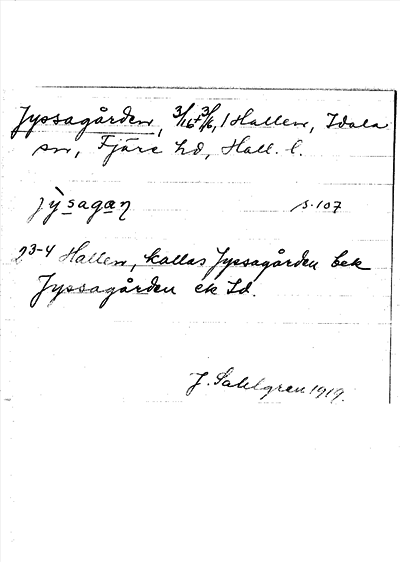 Jyssagården, 3/16+3/6, 1 Hallen, Idala
sn, Fjäre hd, Hall. l.
jỳsagaṇ s. 107
2 3-4 Hallen, kallas Jyssagården bek
Jyssagården ek Id.
J. Sahlgren 1919.